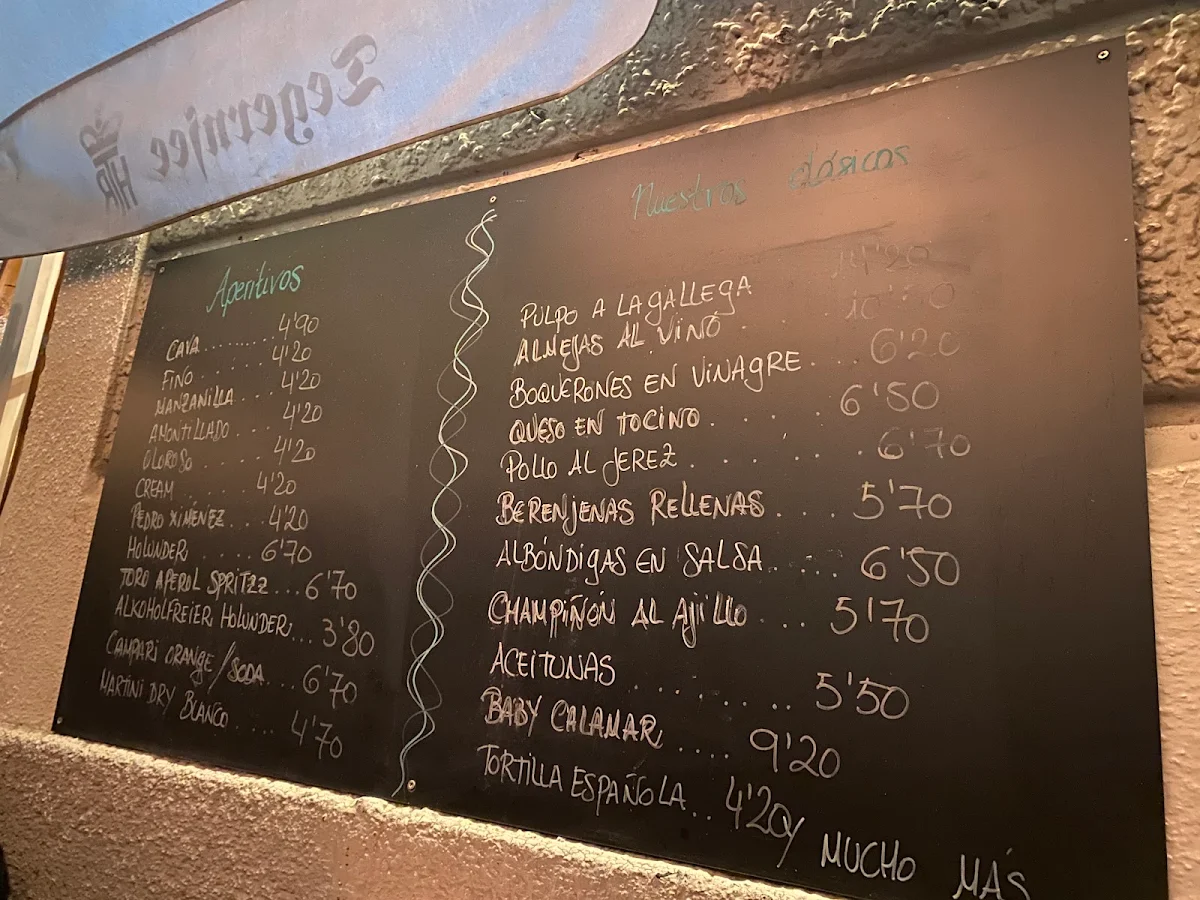 Tegernsee
Aperitivos
CAVA......... 4'90
FINO......... 4'20
MANZANILLA.... 4'20
AMONTILLADO.... 4'20
OLOROSO..... 4'20
CREAM...... 4'20
PEDRO XIMÉNEZ... 4'20
HOLUNDER..... 6'70
TORO APEROL SPRITZZ... 6'70
ALKOHOLFREIER HOLUNDER... 3'80
CAMPARI ORANGE/SODA... 6'70
MARTINI DRY BLANCO.... 4'70
Nuestros clásicos
PULPO A LA GALLEGA 14'20
ALMEJAS AL VINO
BOQUERONES EN VINAGRE... 6'20
QUESO EN TOCINO..... 6'50
POLLO AL JEREZ...... 6'70
BERENJENAS RELLENAS.... 5'70
ALBÓNDIGAS EN SALSA..... 6'50
CHAMPIÑÓN AL AJILLO.... 5'70
ACEITUNAS....... 5'50
BABY CALAMAR.... 9'20
TORTILLA ESPAÑOLA.. 4'20
Y MUCHO MÁS